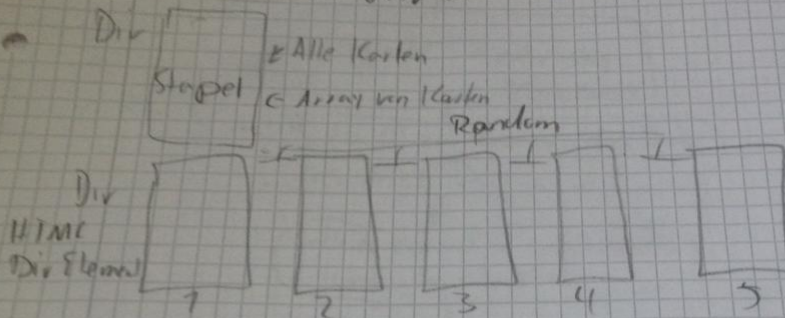 Div
← Alle Karten
Stapel
← Array von Karten
Random
Div
HTML
Div Element
1 2 3 4 5